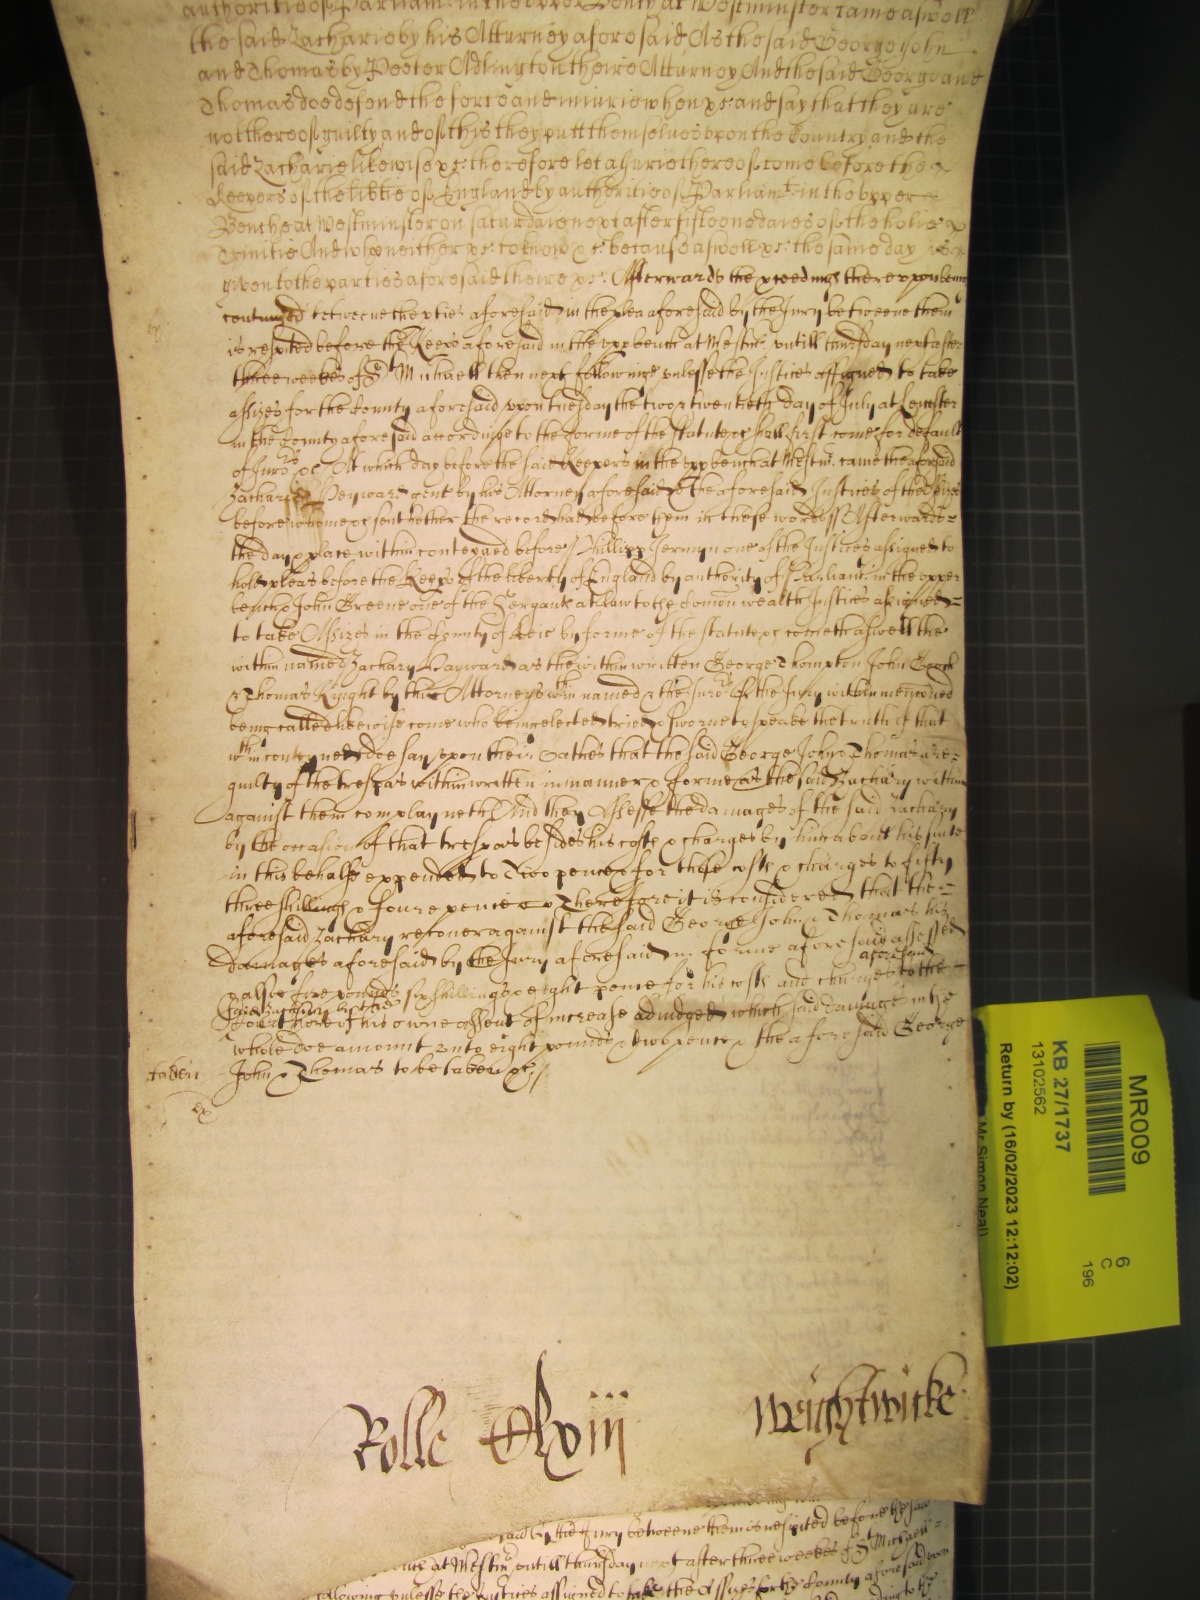 authoritie of Parliamt: in the upper Bench at Westminster came aswell
the said Zacharie by his Atturney aforesaid As the said George John
and Thomas by Peeter Adlington theire Atturney And the said George and
Thomas doe defend the force and iniurie when &c: and say that they are
not thereof guilty and of this they putt themselves upon the Country and the
said Zacharie likewise &c: therefore let a Jurie thereof come before the
Keepers of the libtie of England by authoritie of Parliamt: in the upper
Bench at Westminster on saturdaie next after fifteene daies of the holie
Trinitie And who neither &c: to know &c: because aswell &c: the same day is
given to the parties aforesaid theire &c: Afterwards the pceedings thereupon being
continued betweene the pties aforesaid in the plea aforesaid by the Jury betweene them
is respited before the Keeps aforesaid in the upp bench at Westmr. untill thursday next after
three weekes of St Michaell then next following unlesse the Justices assigned to take
assizes for the County aforesaid upon tuesday the two & twentieth day of July at Leicester
in the County aforesaid accordinge to the forme of the statute &c shall first come for default
of Jurors &c At which day before the said Keepers in the upp bench at Westmr. came the aforesaid
Zachary Heyward gent by his Attorney aforesaid & the aforesaid Justices of the Assizes
before whome &c sent hether the record had before them in these words ss Afterwards
the day & place within conteyned before Phillipp Jermyn one of the Justices assigned to
hold pleas before the Keeps of the liberty of England by authority of Parliamt. in the upper
bench & John Greene one of the Sergants at Law to the Comon wealth Justices assigned
to take Assizes in the County of Leic by forme of the statute &c cometh aswell the
within named Zachary Hayward as the within written George Thompton John
& Thomas Knight by their Attorneys wthin named & the Jurors of the Jury within menconed
being called likewise come who being elected tried & sworne to speake the truth of that
wthin conteyned doe say upon their Oathes that the said George John & Thomas are
guilty of the trespas within written in manner & forme as the said Zachary within
against them complayneth And they Assesse the damages of the said Zachary
by the occasion of that trespas besides his costs & charges by him about his suite
in this behalfe expended to Two pence & for those costs & charges to fifty
three shillings & foure pence Therefore it is considered that the
aforesaid Zachary recover against the said George John & Thomas his
Damages aforesaid by the Jury aforesaid in forme aforesaid assessed
& alsoe five pounds six shillings & eight pence for his costs and charges aforesaid to the
said Zachary by the
Court here of his owne assent of increase adiudged which said damages in the
whole doe amount unto eight pounds & two pence & the aforesaid George
taken John & Thomas to be taken &c
Rolle
Wightwicke
MR009
6
C
196
KB 27/1737
13102562
Return by (16/02/2023 12:12:02)
Mr Simon Neal)
said by the Jury betweene them is respited before the said
at Westmr. untill thursday next after three weekes of St Michaell
following unlesse the Justices assigned to take the Assizes for the County aforesaid upon